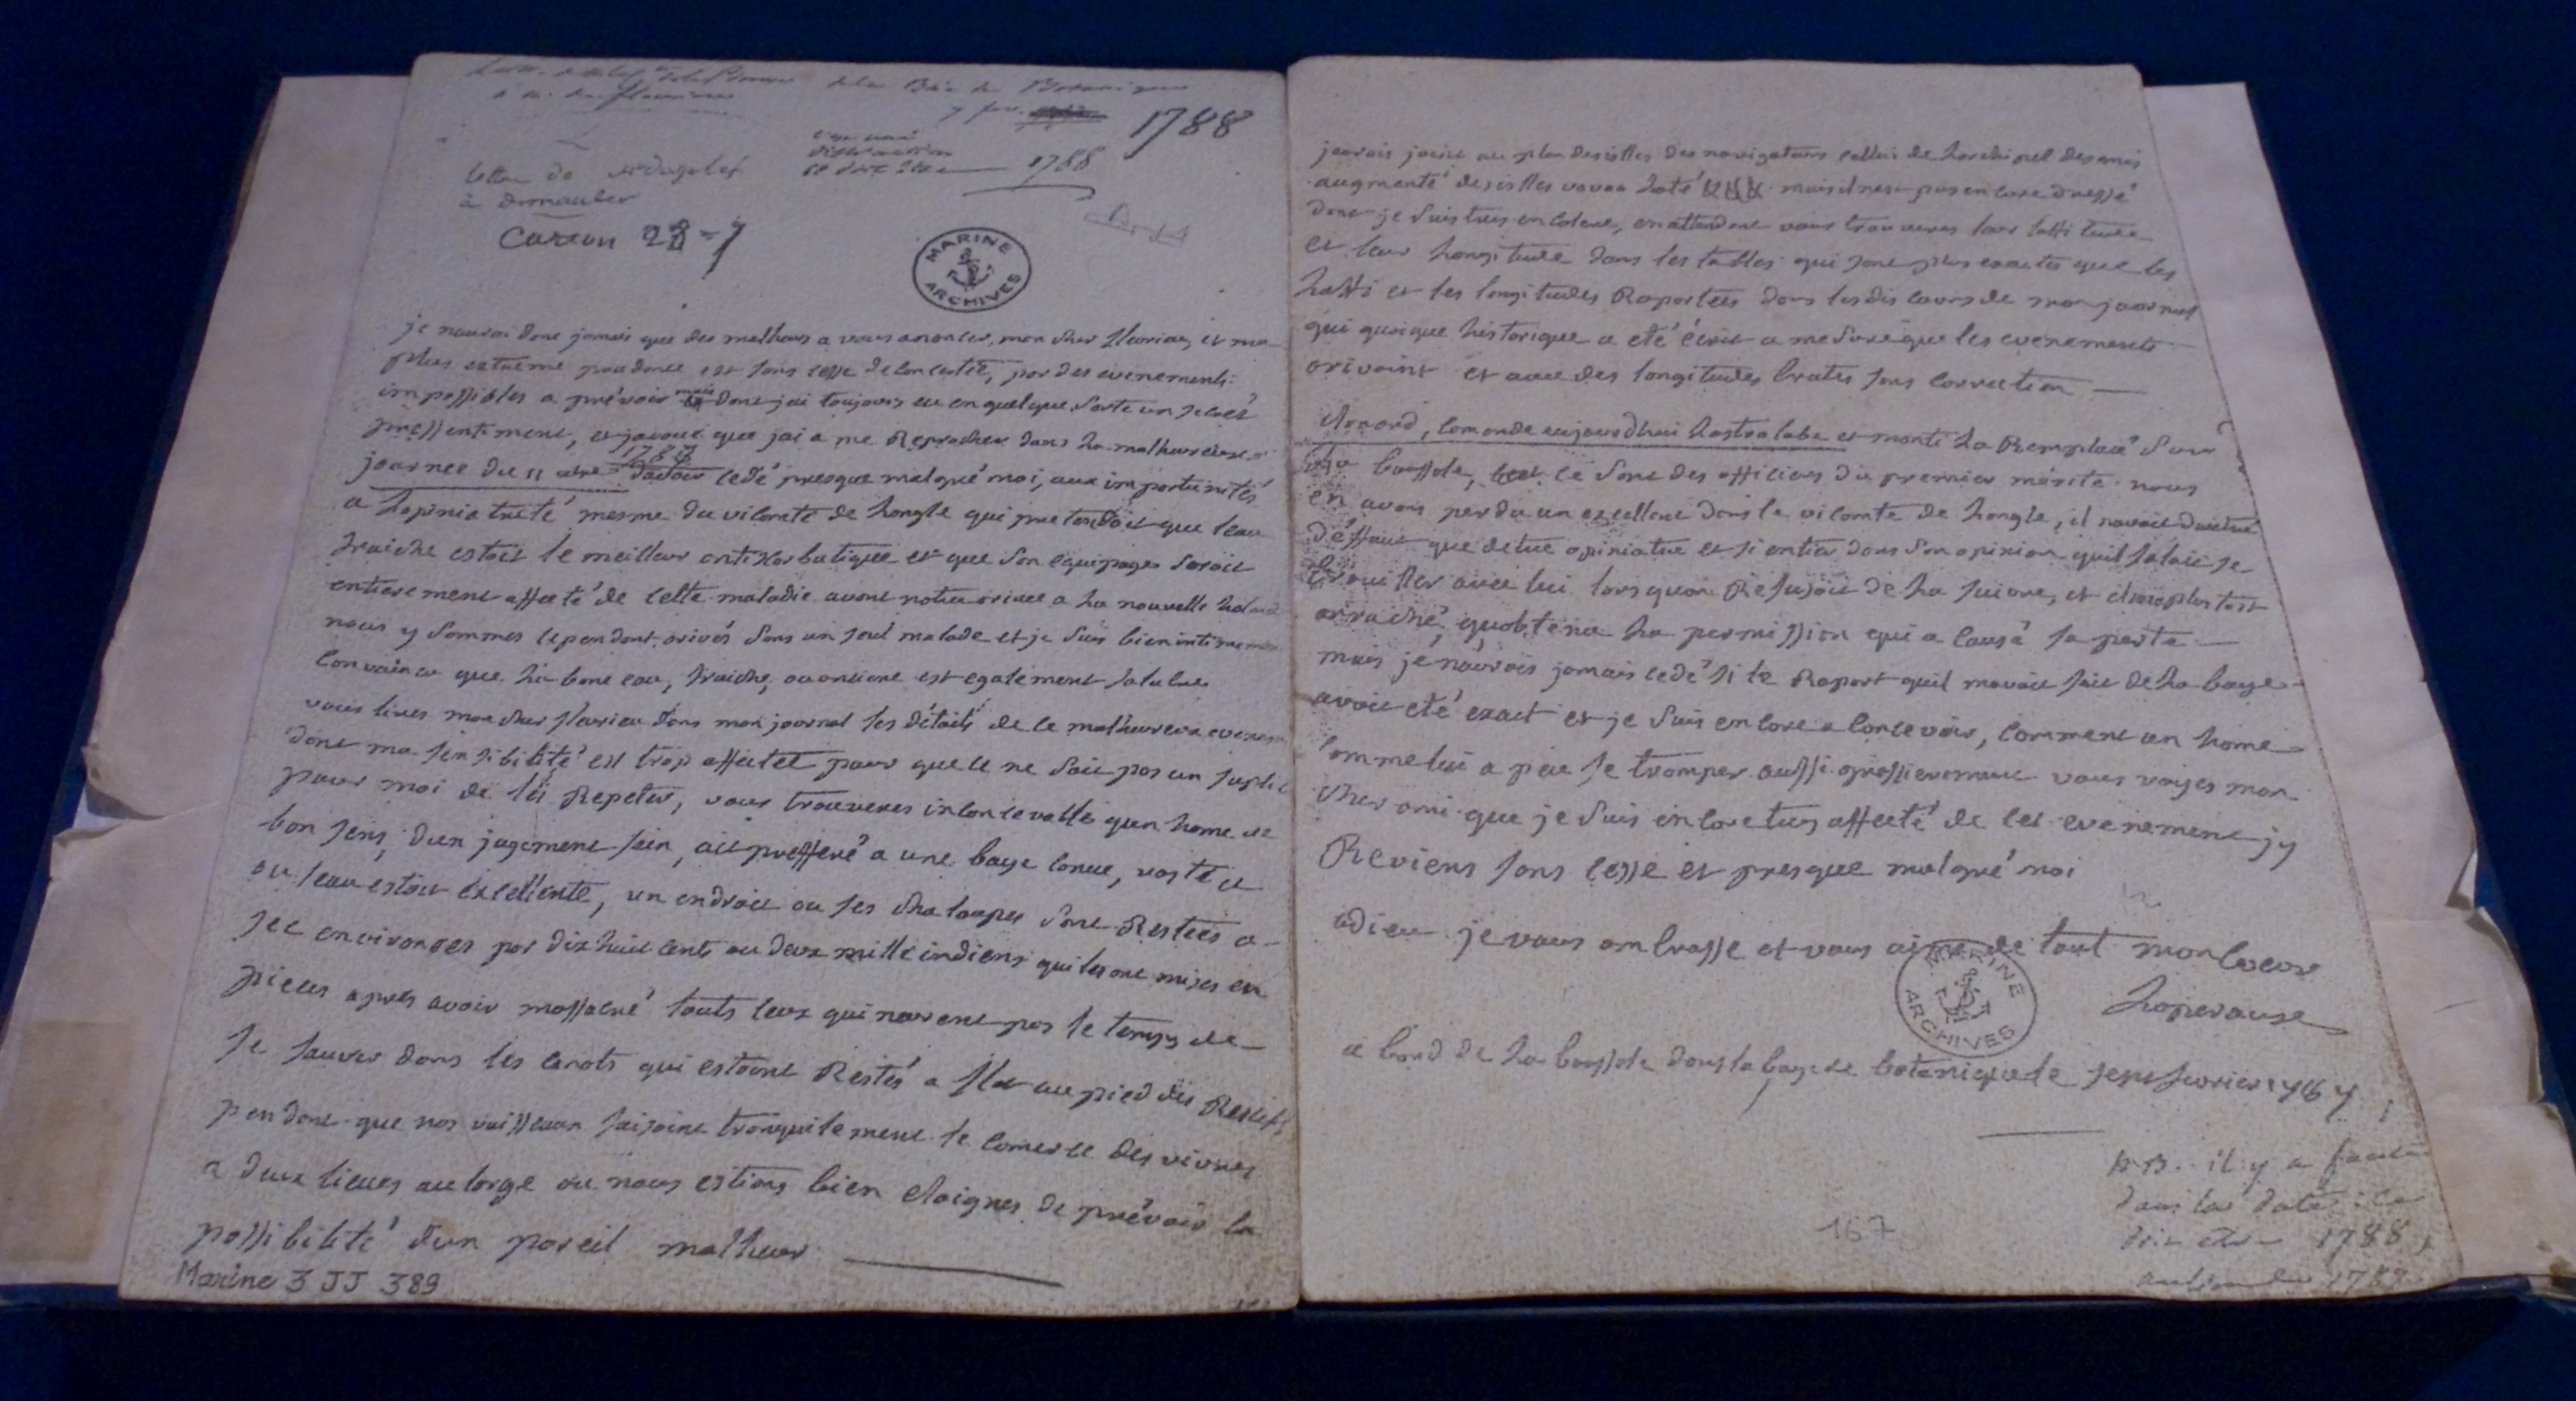 de la Baie de Botanique
à M. de fleurieu
7 fev. 1788
1788
lettre de
à
Carton 28=7
MARINE ARCHIVES
je naurai donc jamais que des malheurs a vous anoncer, mon cher fleurieu, et ma
plus extreme prudence est sans cesse deconcertée, par des evenements
impossibles a prévoir mais dont jai toujours eu en quelque sorte un secret
pressentiment, et javoue que jai a me Reprocher dans la malheureuse
journee du 11 xbre 1787 davoir cedé presque malgré moi, aux importunités
a lopiniatreté mesme du vicomte de langle qui pretendoit que leau
fraiche estoit le meilleur antiskorbutique et que son equipage seroit
entierement affecté de cette maladie avant notre arivee a la nouvelle
nous y sommes cependant arivés sans un seul malade et je suis bien
convaincu que la bone eau, fraiche, ou anciene est egalement salubre
vous lires mon cher fleurieu dans mon journal les détails de ce malheureux
dont ma sensibilité est trop affectée pour que ce ne soit pas un
pour moi de les Repeter, vous trouveres inconcevable qun home de
bon sens, dun jugement sain, ait prefferé a une baye conue, vaste et
ou leau estoit excellente, un endroit ou ses chaloupes sont Restées a
sec environées par dix huit cents ou deux mille indiens qui les ont mises en
pieces apres avoir massacré touts ceux qui neurent pas le temps de
se sauver dans les canots qui estoint Restés a flot au pied des Rescifs
pendant que nos vaisseaux faisoint tranquilement le comerce des vivres
a deux lieues au large ou nous estions bien eloignes de prévoir la
possibilité dun pareil malheur
Marine 3 JJ 389
jaurois joint au plan des isles des navigateurs cellui de larchipel des amis
augmenté des isles vavao latté mais il nest pas encore dressé
dont je suis tres en colere, en attendant vous trouveres leur lattitude
et leur longitude dans les tables qui sont plus exactes que les
latti et les longitudes Raportées dans les discours de mon journal
qui quoique historique a eté écrit a mesure que les evenements
arivoint et avec des longitudes brutes sans correction
clonard, comande aujourdhui lastrolabe et monti la Remplacé sur
la boussole, ce sont des officiers du premier mérite nous
en avons perdu un excellent dans le vicomte de langle, il navoit dautre
déffaut que detre opiniatre et si entier dans son opinion quil faloit se
brouiller avec lui lorsquon Refusoit de la suivre, et il ma plus tost
arraché, quobtenu la permission qui a causé sa perte
mais je naurois jamais cedé si le Raport quil mavoit fait de la baye
avoit eté exact et je suis encore a concevoir, coment un home
comme lui a peu se tromper aussi grossierement vous voyes mon
cher ami que je suis encore tres affecté de cet evenement jy
Reviens sans cesse et presque malgré moi
adieu je vous ambrasse et vous aime de tout mon coeur
Laperouse
MARINE ARCHIVES
a bord de la boussole dans la baye de botanique le sept fevrier 1787
N.B. il y a faute
dans la date : ce
doit etre 1788,
au lieu de 1787.
167